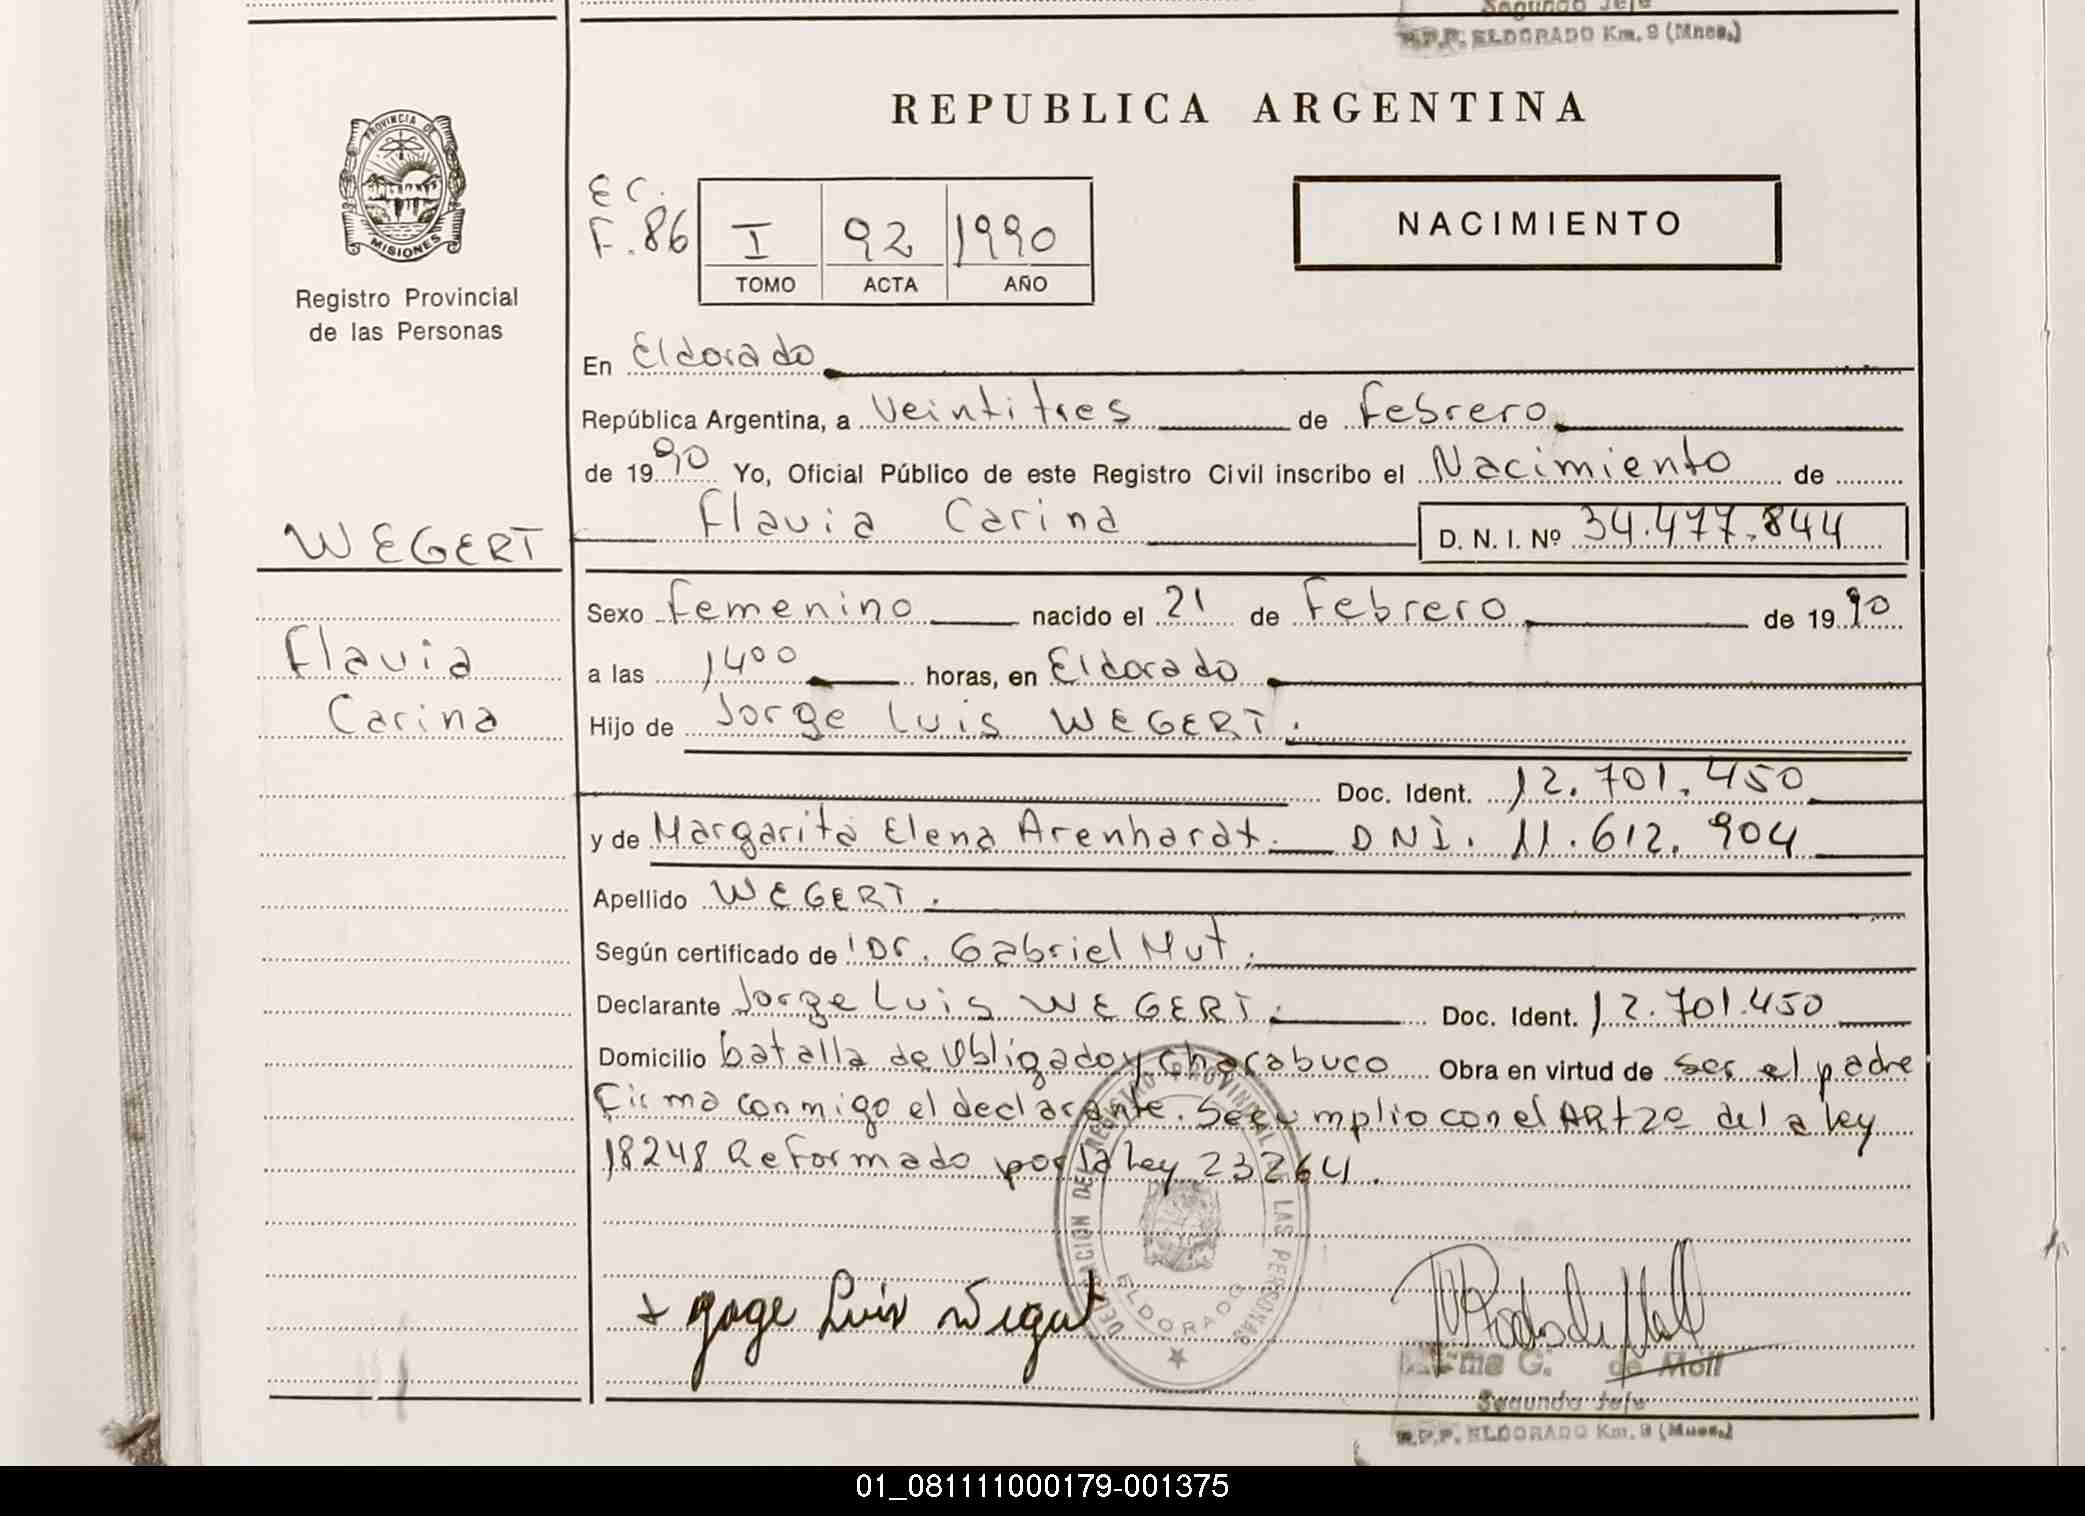 Segundo Jefe
R.P.P. ELDORADO Km. 9 (Mnes.)
REPUBLICA ARGENTINA
PROVINCIA DE
MISIONES
Registro Provincial
de las Personas
E C.
F. 86
I 92 1990
TOMO ACTA AÑO
NACIMIENTO
En Eldorado
República Argentina, a Veintitres de Febrero
de 1990 Yo, Oficial Público de este Registro Civil inscribo el Nacimiento de
WEGERT
Flavia Carina D. N. I. Nº 34.477.844
Sexo Femenino nacido el 21 de Febrero de 1990
Flavia
Carina
a las 1400 horas, en Eldorado
Hijo de Jorge Luis WEGERT.
Doc. Ident. 12.701.450
y de Margarita Elena Arenhardt. DNI. 11.612.904
Apellido WEGERT.
Según certificado de Dr. Gabriel Mut.
Declarante Jorge Luis WEGERT. Doc. Ident. 12.701.450
Domicilio batalla de Obligado y Chacabuco Obra en virtud de ser el padre
Firma conmigo el declarante. Se cumplio con el ARt 2º de la ley
18248 Reformado por la ley 23264.
DELEGACION DEL REGISTRO PROVINCIAL DE LAS PERSONAS
ELDORADO
+ Jorge Luis Wegert
G. de Moll
Segundo Jefe
R.P.P. ELDORADO Km. 9 (Mnes.)
01_081111000179-001375